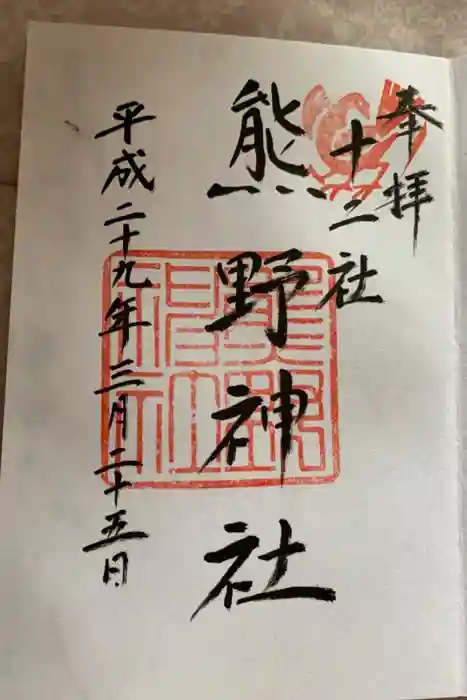 奉拝
十二社
熊野神社
平成二十九年三月二十五日
熊野
神社